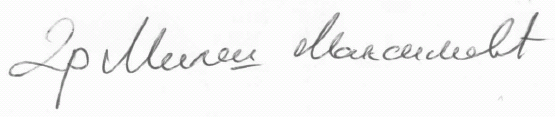 Др Милош Максимовић